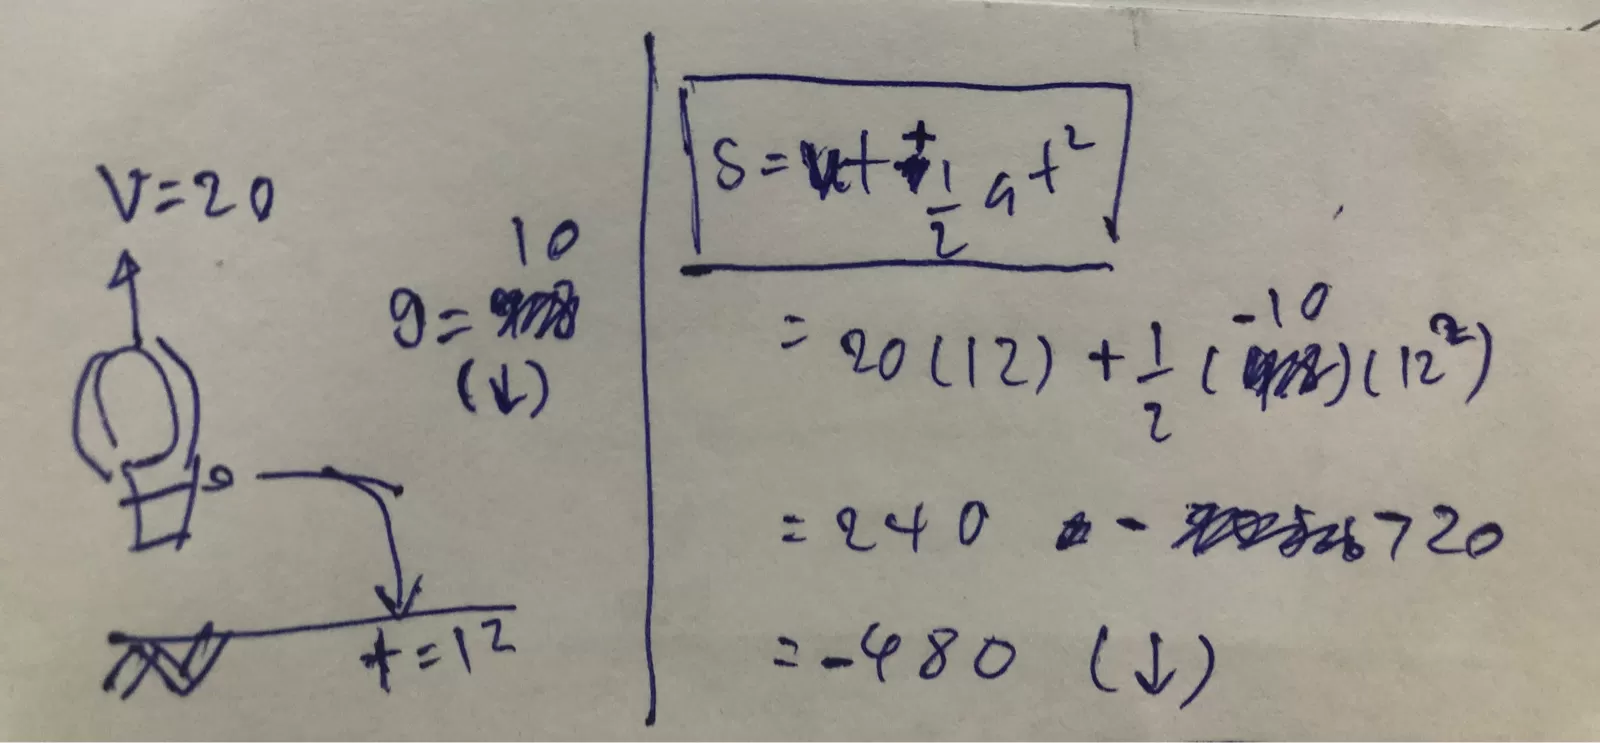 V=20
10
g=
(↓)
t=12
S=ut+½at²
=20(12)+½(-10)(12²)
=240 - 720
=-480 (↓)